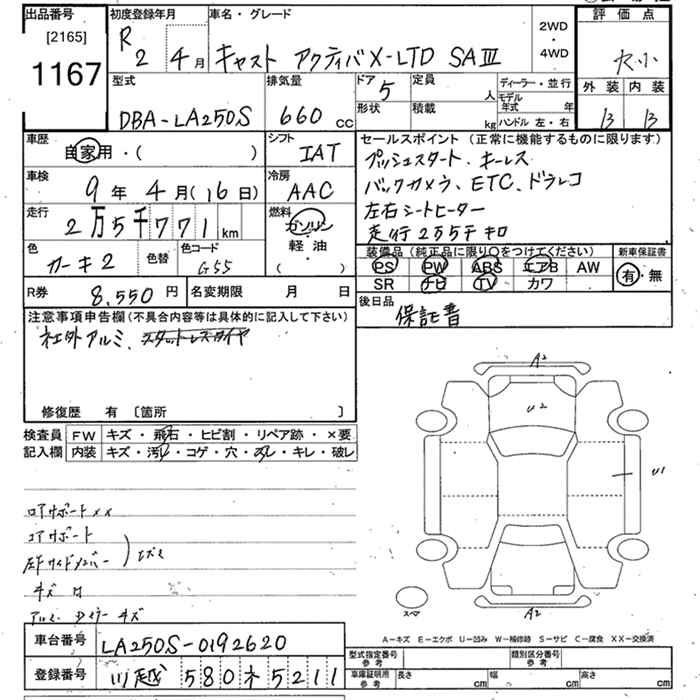 出品番号
[2165]
1167
初度登録年月
R 2 4月
車名・グレード
キャスト アクティバX-LTD SAⅢ
2WD
・
4WD
評価点
外装 内装
B B
型式
DBA-LA250S
排気量
660 cc
ドア 5
定員 人
形状
積載 kg
ディーラー・並行
モデル年式 年
ハンドル 左・右
車歴
自家用・( )
シフト
IAT
セールスポイント (正常に機能するものに限ります)
プッシュスタート、キーレス
バックカメラ、ETC、ドラレコ
左右シートヒーター
走行2万5千キロ
車検
9年4月(16日)
冷房
AAC
走行
2万5千771km
燃料
ガソリン
・
軽油
( )
色
カーキ2
色替
色コード
G55
装備品 (純正品に限り○をつけてください)
PS PW ABS エアB AW
SR ナビ TV カワ
新車保証書
有・無
R券 8,550円
名変期限 月 日
後日品
保証書
注意事項申告欄(不具合内容等は具体的に記入して下さい)
社外アルミ、スタットレスタイヤ
修復歴 有 〔箇所 〕
検査員記入欄
FW キズ・飛石・ヒビ割・リペア跡・×要
内装 キズ・汚レ・コゲ・穴・スレ・キレ・破レ
コアサポート
キズ
A2
U2
U1
A2
スペア
A-キズ E-エクボ U-凹み W-補修跡 S-サビ C-腐食 XX-交換済
車台番号 LA250S-0192620
登録番号 川越 580 ホ 5211
型式指定番号 参考
類別区分番号 参考
車庫証明用 参考 長さ cm 幅 cm 高さ cm